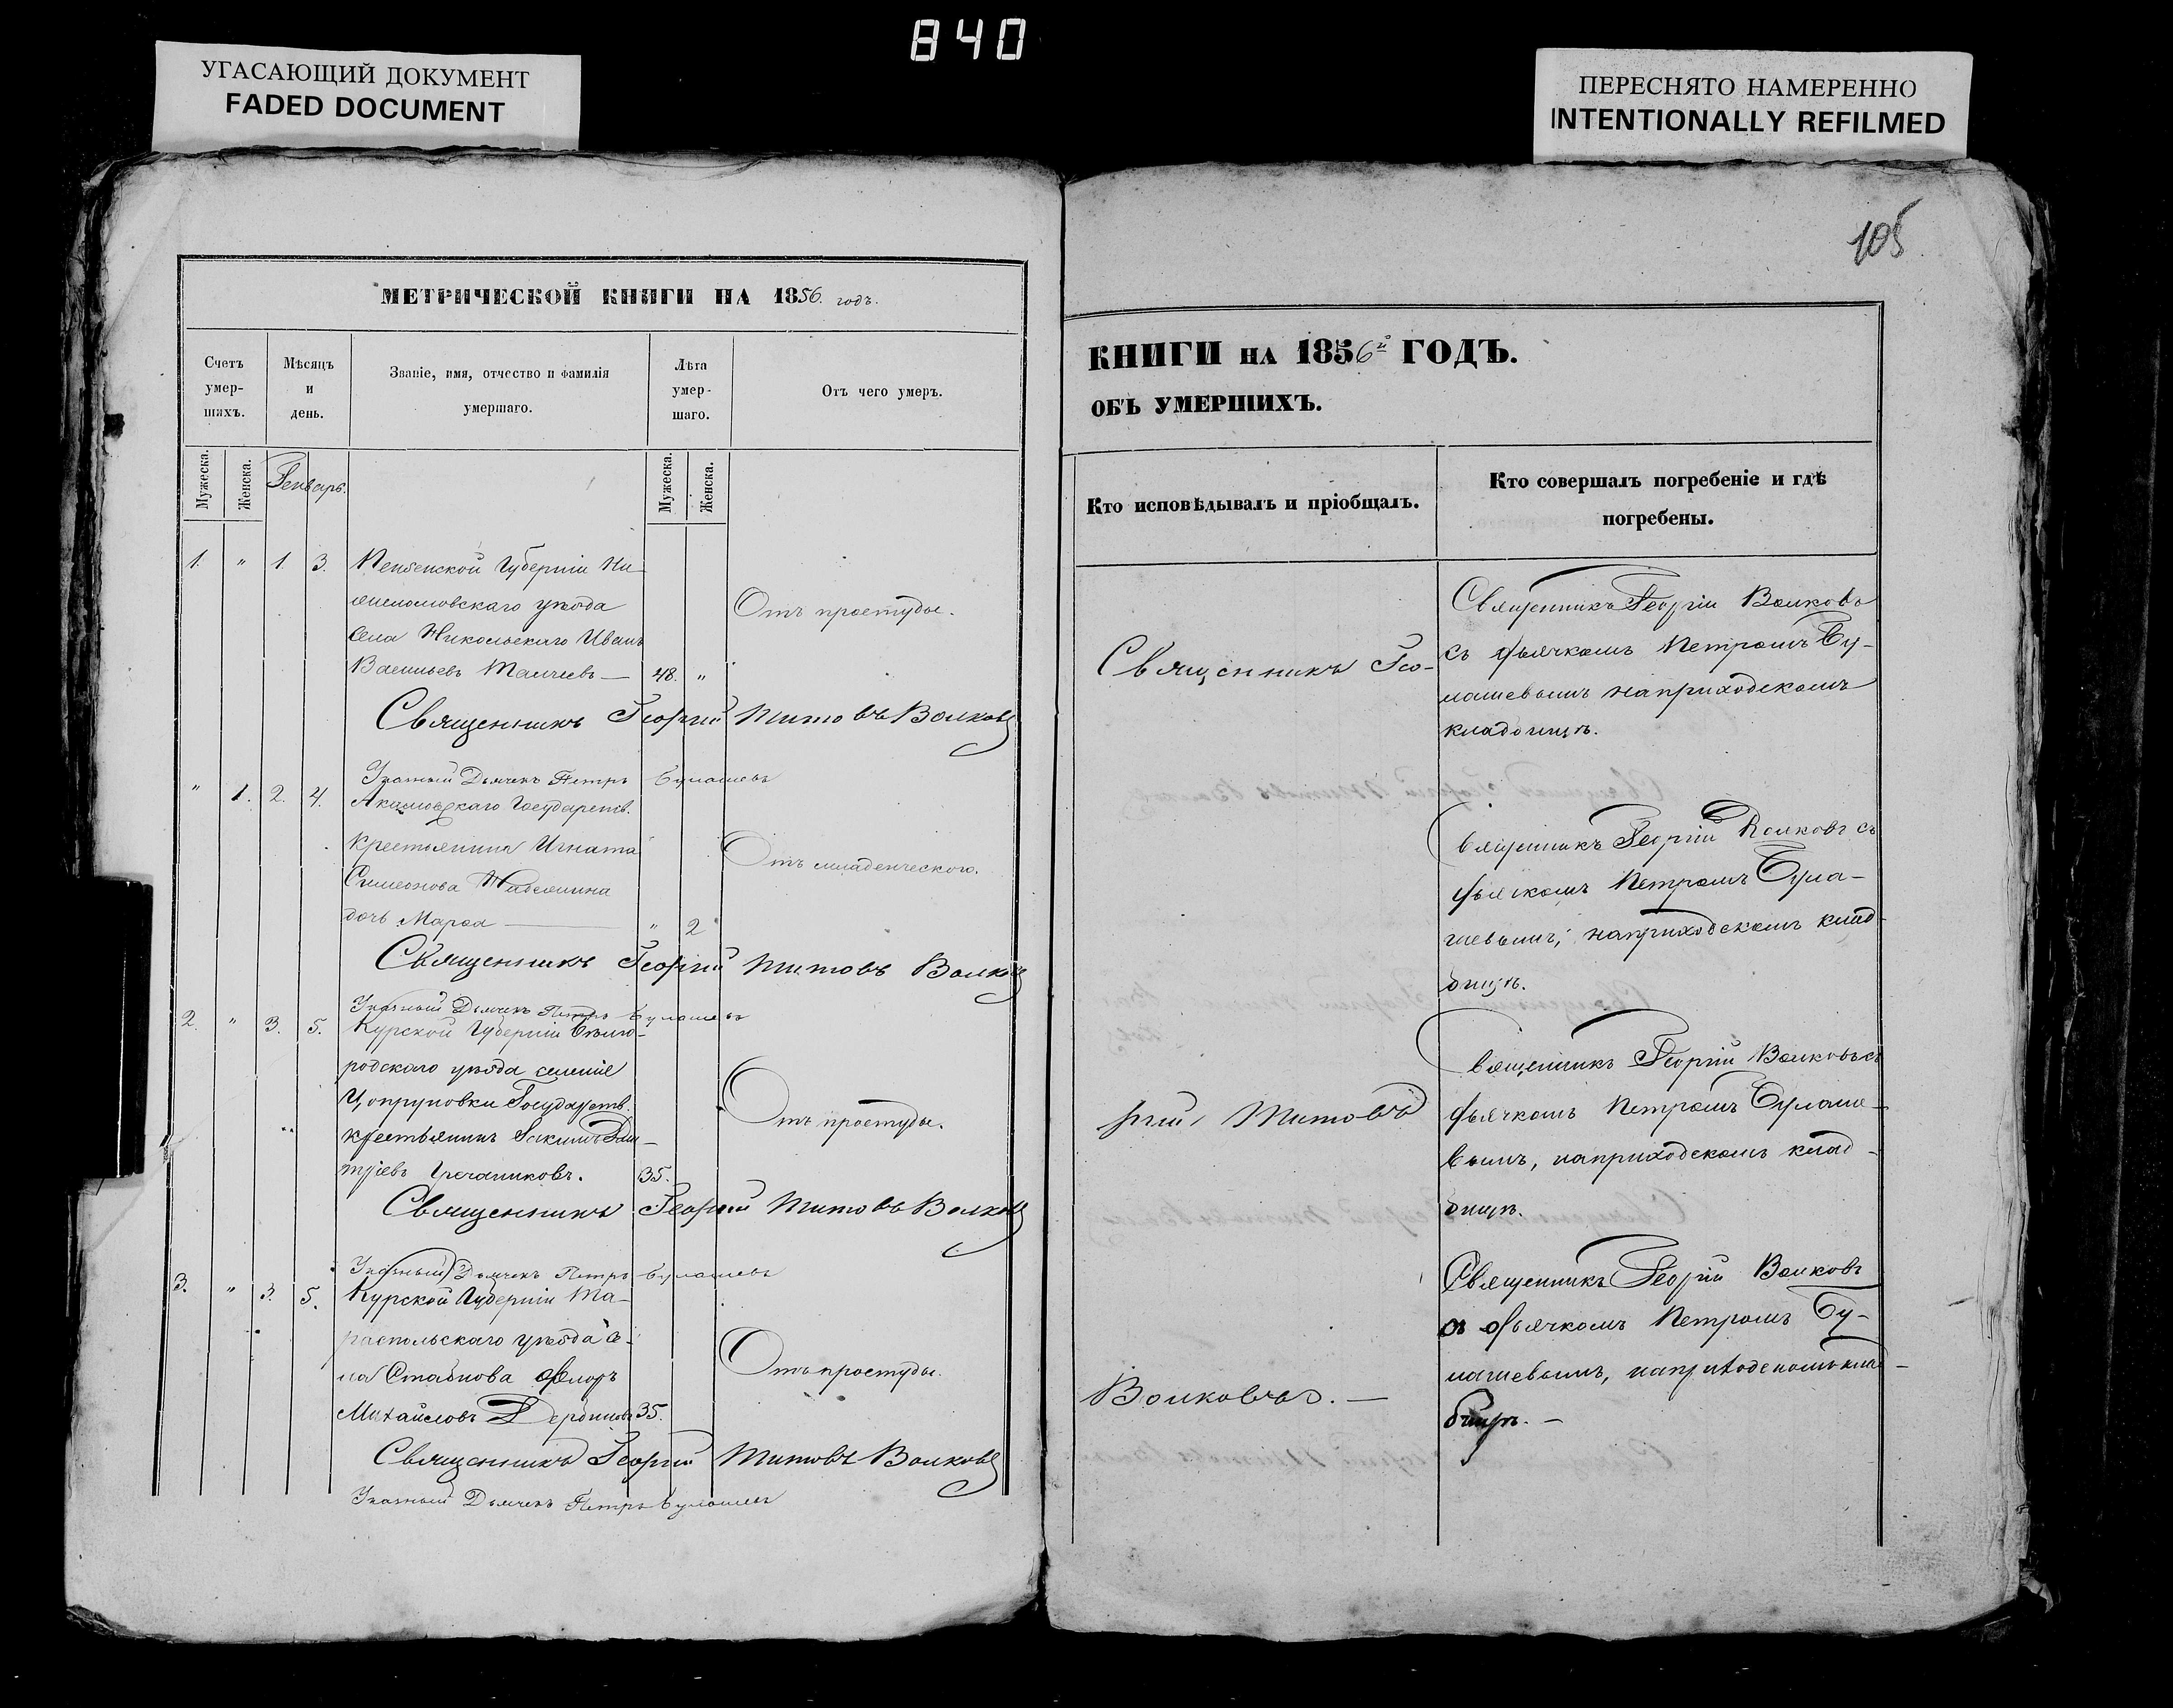 840
УГАСАЮЩИЙ ДОКУМЕНТ
FADED DOCUMENT
ПЕРЕСНЯТО НАМЕРЕННО
INTENTIONALLY REFILMED
МЕТРИЧЕСКОЙ КНИГИ НА 1856. годъ.
Счетъ умер-шихъ.
Мѣсяцъ и день.
Званіе, имя, отчество и фамилія умершаго.
Лѣта умер-шаго.
Отъ чего умеръ.
Мужеска.
Женска.
Генварь.
Мужеска.
Женска.
1. " 1. 3. Пензенской Губерніи Ни-
жнеломовскаго уѣзда
Отъ простуды.
села Никольскаго Иванъ
Васильевъ — 48. "
Священникъ Георгій Титовъ Волковъ
Указный Дьячекъ Петръ Булашевъ
" 1. 2. 4. Государств.
крестьянина Игната
Отъ младенческаго.
Симеонова
дочь Марѳа — " 2
Священникъ Георгій Титовъ Волковъ
Указный Дьячекъ Петръ Булашевъ
2. " 3. 5. Курской Губерніи Бѣлго-
родскаго уѣзда селенія
Государств.
Отъ простуды.
крестьянинъ Іакимъ Дми-
тріевъ Гречаниковъ. 35.
Священникъ Георгій Титовъ Волковъ
Указный Дьячекъ Петръ Булашевъ
3. " 3. 5. Курской Губерніи
уѣзда се-
ла Флоръ
Отъ простуды.
Михайловъ 35.
Священникъ Георгій Титовъ Волковъ
Указный Дьячекъ Петръ Булашевъ
105
КНИГИ НА 1856й ГОДЪ.
ОБЪ УМЕРШИХЪ.
Кто исповѣдывалъ и пріобщалъ.
Кто совершалъ погребеніе и гдѣ погребены.
Священникъ Гео-
ргій Титовъ
Волковъ. —
Священникъ Георгій Волковъ
съ дьячкомъ Петромъ Бу-
лашевымъ на приходскомъ
кладбищѣ.
Священникъ Георгій Волковъ съ
дьячкомъ Петромъ Була-
шевымъ, на приходскомъ клад-
бищѣ.
Священникъ Георгій Волковъ съ
дьячкомъ Петромъ Булаше-
вымъ, на приходскомъ клад-
бищѣ.
Священникъ Георгій Волковъ
съ дьячкомъ Петромъ Бу-
лашевымъ, на приходскомъ клад-
бищѣ. —